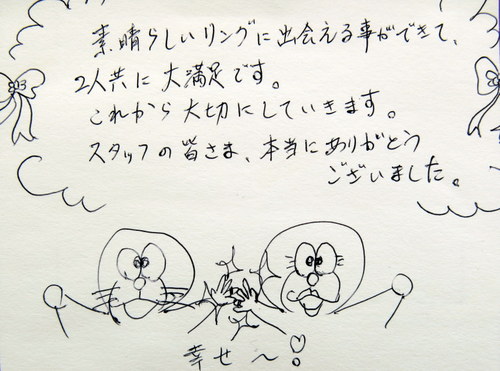 素晴らしいリングに出会える事ができて、
2人共に大満足です。
これから大切にしていきます。
スタッフの皆さま、本当にありがとう
ございました。
幸せ〜!